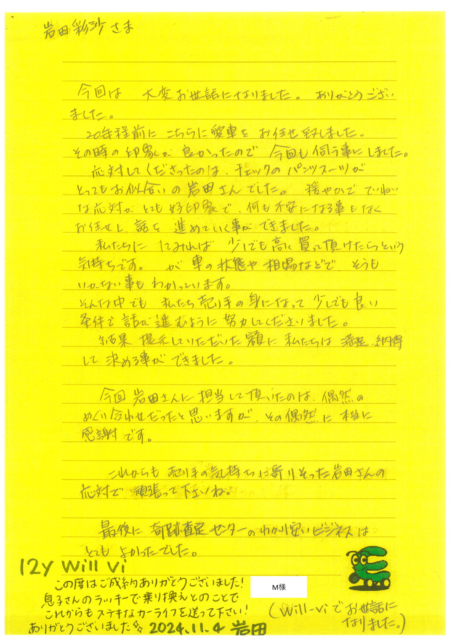 岩田彩沙さま
今回は 大変お世話になりました。ありがとうござい
ました。
20年程前に こちらに愛車を お任せ致しました。
その時の印象が良かったので 今回も伺う事にしました。
応対してくださったのは、チェックのパンツスーツが
とってもお似合いの岩田さんでした。穏やかで ていねい
な応対が とても好印象で、何も不安になる事もなく
お任せし 話を 進めていく事ができました。
私たちに してみれば 少しでも高く買って頂けたらという
気持ちです。が 車の状態や相場などで そうも
いかない事も わかっています。
そんな中でも 私たち売り手の身になって 少しでも良い
条件で 話が進むように 努力してくださいました。
結果 提示していただいた額に 私たちは 満足、納得
して 決める事ができました。
今回 岩田さんに担当して頂いたのは、偶然の
めぐり合わせだったと思いますが、その偶然に 本当に
感謝です。
これからも 売り手の気持ちに寄りそった岩田さんの
応対で 頑張って下さいね。
最後に 奇跡査定センターの わかり易いビジネスは
とても よかったでした。
12y Will Vi
この度はご成約ありがとうございました!
息子さんのラッキーで乗り換えとのことで
これからもステキなカーライフを送って下さい!
ありがとうございました 2024.11.4 岩田
M様
(Will-Viでお世話に
なりました。)